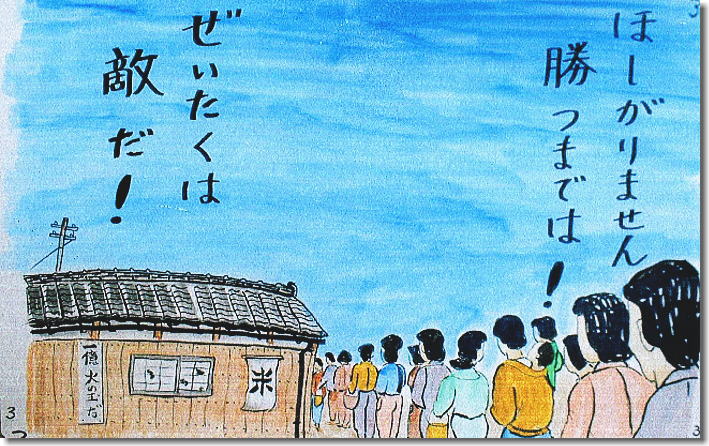 ほしがりません
勝つまでは!
ぜいたくは
敵だ!
米
一億火の玉だ
3
3